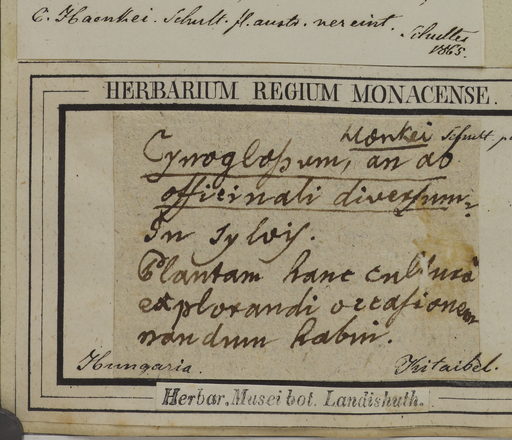 C. Haenkei. Schult. fl. austr. vereint.
Schultes
1865.
HERBARIUM REGIUM MONACENSE.
Hænkei Schult.
Cynoglossum, an ab
officinali diversum?
In sylvis.
Plantam hanc culturâ
explorandi occasionem
nondum habui.
Hungaria.
Kitaibel.
Herbar. Musei bot. Landishuth.